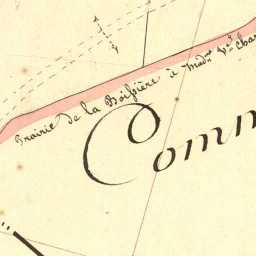 Prairie de la Boissière à Mad.me V.e Cha
Comm